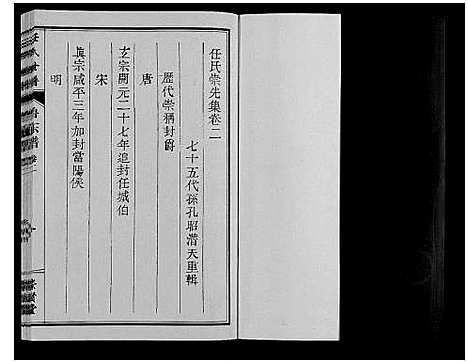 任氏崇先集卷二
七十五代孫孔昭潛天重輯
歷代崇稱封爵
唐
玄宗開元二十七年追封任城伯
宋
真宗咸平三年加封當陽侯
明